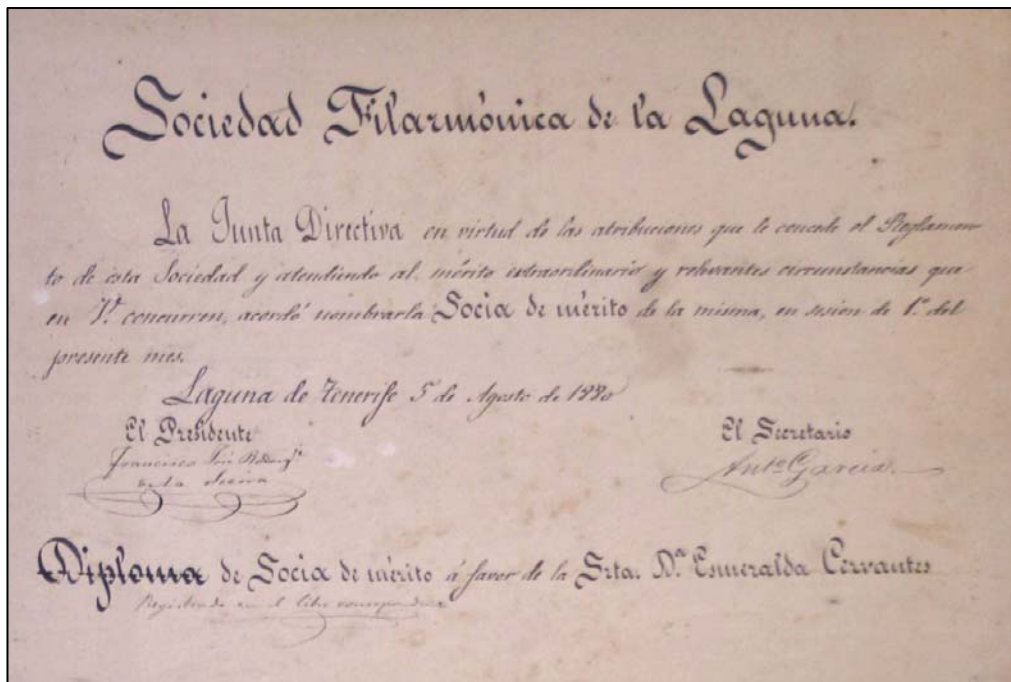 Sociedad Filarmónica de la Laguna.
La Junta Directiva en virtud de las atribuciones que le concede el Reglamen-
to de esta Sociedad y atendiendo al mérito extraordinario y relevantes circunstancias que
en V. concurren, acordó nombrarla Socia de mérito de la misma, en sesion de 1º del
presente mes.
Laguna de Tenerife 5 de Agosto de 1880
El Presidente
El Secretario
Francisco
de la
Antº Garcia.
Diploma de Socia de mérito á favor de la Srta. Dª Esmeralda Cervantes
Registrado en el libro